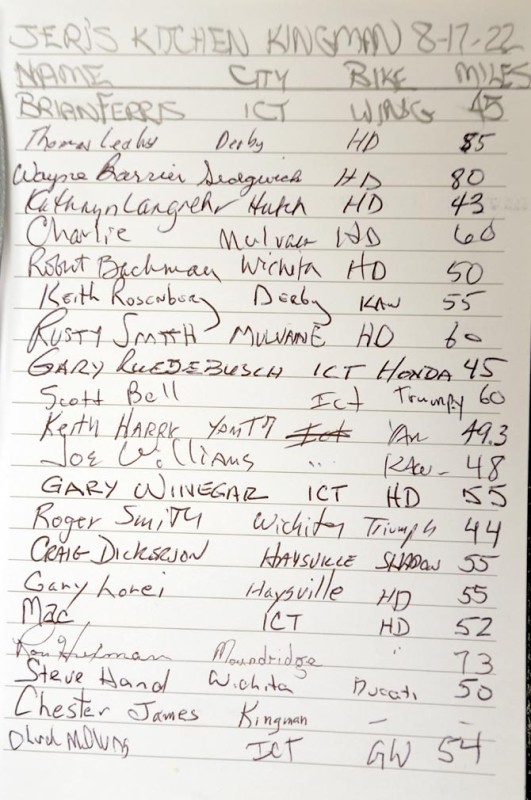 JERI'S KITCHEN KINGMAN 8-17-22
NAME CITY BIKE MILES
BRIAN FERRIS ICT WING 45
Thomas Leahy Derby HD 85
Wayne Barrier Sedgwick HD 80
Kathryn Langrehr Hutch HD 43
Charlie Mulvane HD 60
Robert Bachman Wichita HD 50
Keith Rosenberg Derby KAW 55
RUSTY SMITH MULVANE HD 60
GARY RUEDEBUSCH ICT HONDA 45
Scott Bell Ict 60
Keith HARRY 49.3
Joe Williams " KAW- 48
GARY WINEGAR ICT HD 55
Roger Smith Wichita Triumph 44
CRAIG DICKERSON HAYSVILLE SHADOW 55
Gary Lorei Haysville HD 55
Mac ICT HD 52
Moundridge " 73
Steve Hand Wichita Ducati 50
Chester James Kingman — —
ICT GW 54